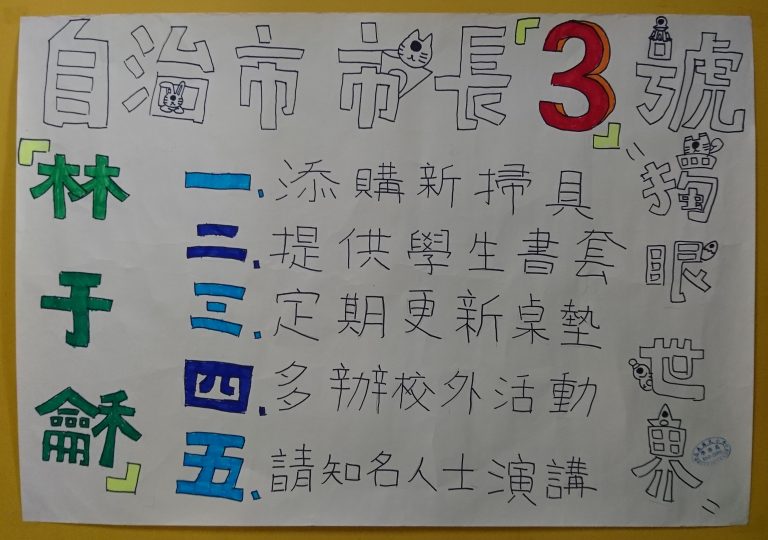 自治市市長「3」號
「林于龢」
一、添購新掃具
二、提供學生書套
三、定期更新桌墊
四、多辦校外活動
五、請知名人士演講
"獨眼世界"